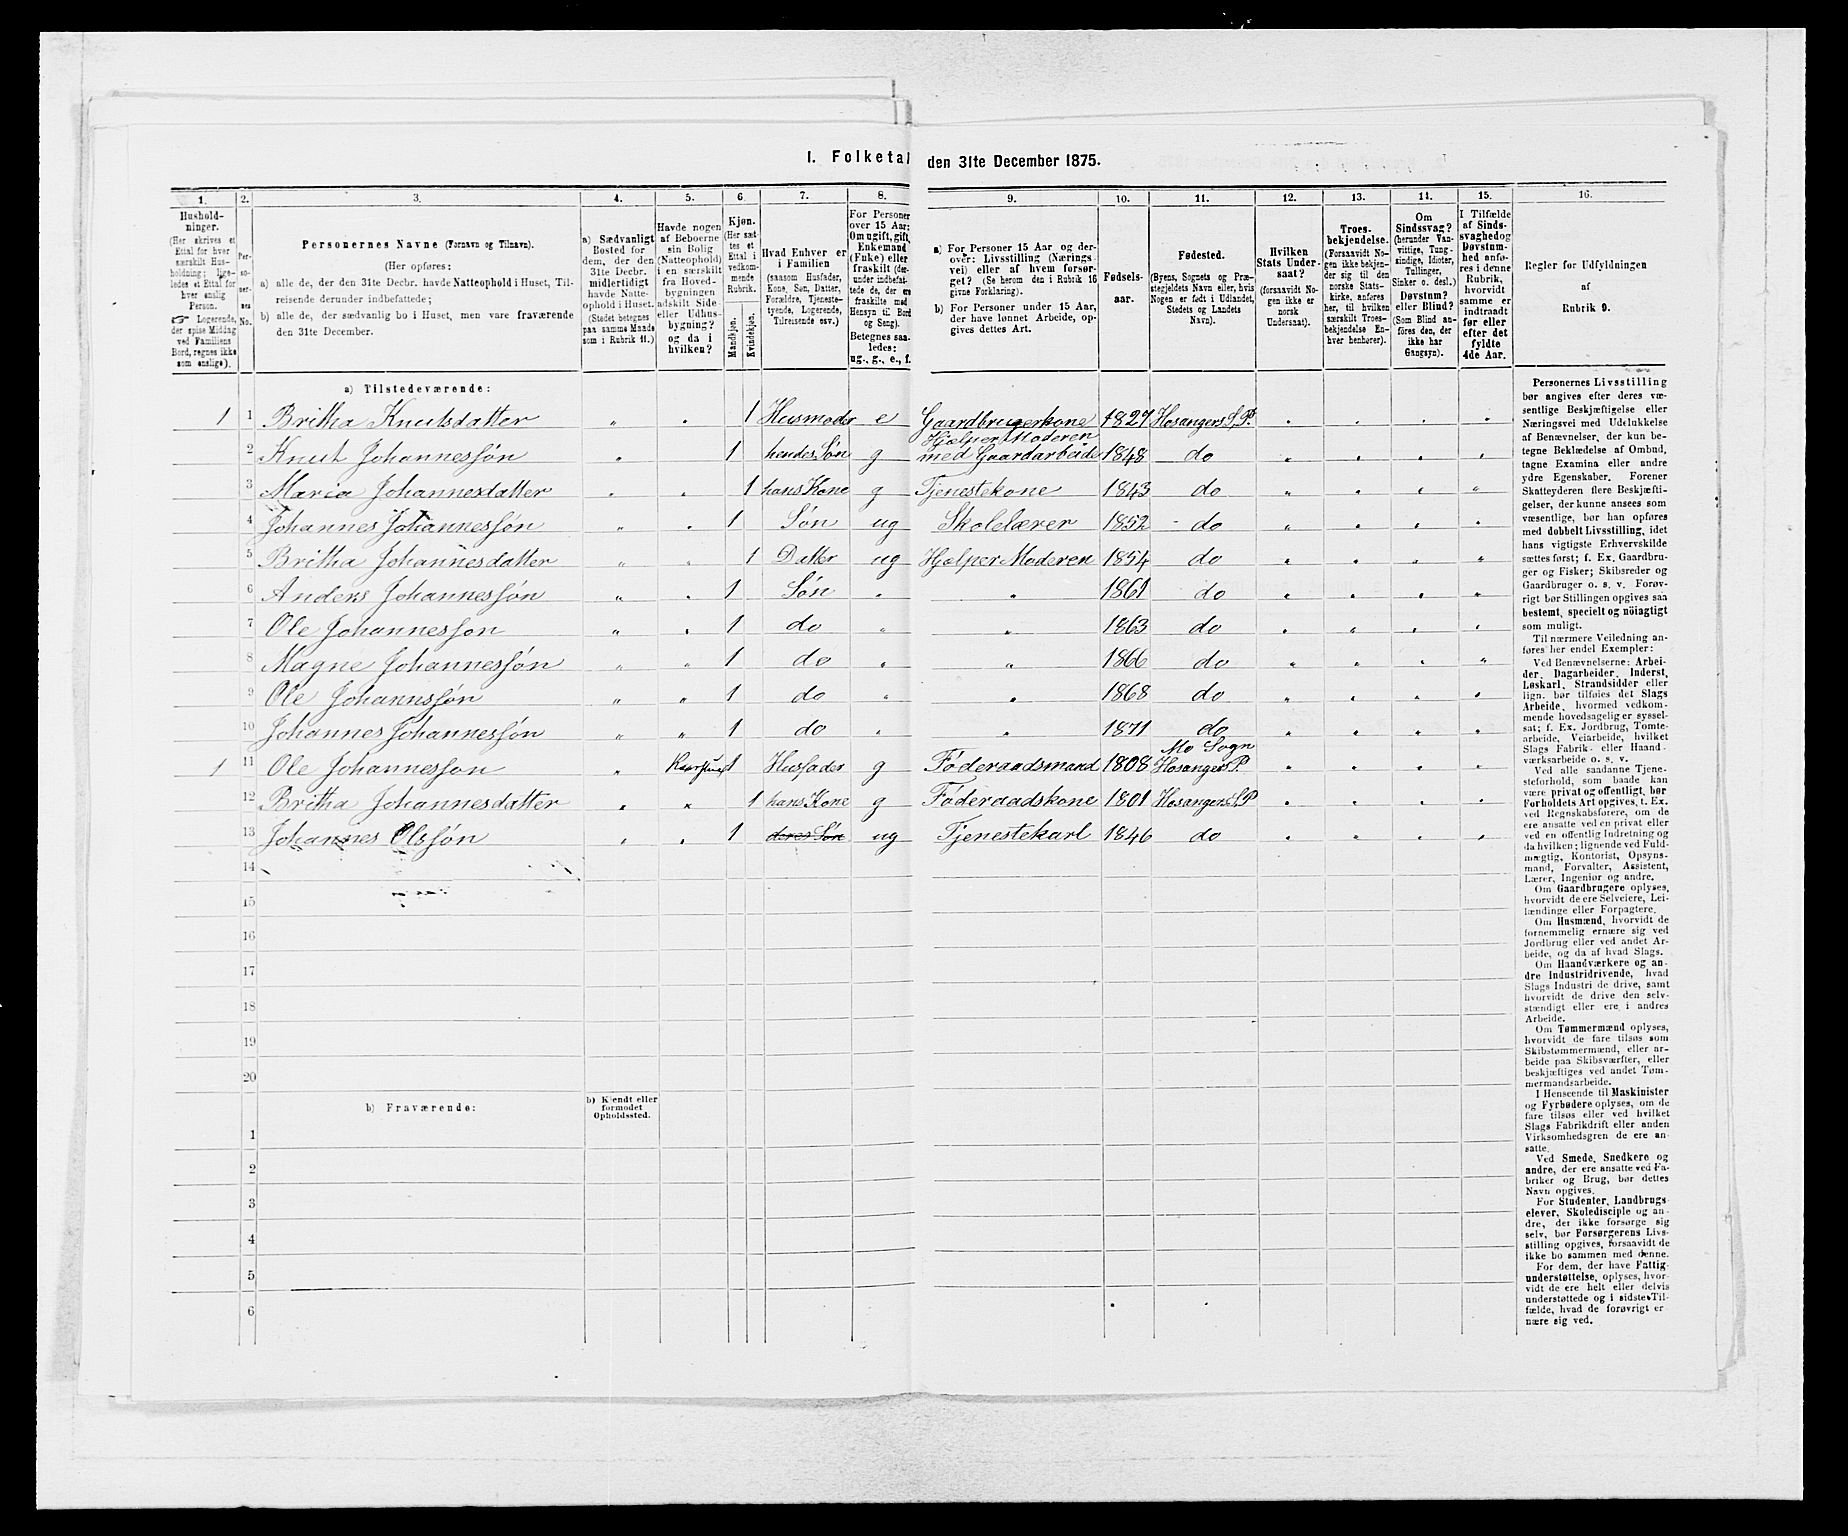 I. Folketal den 31te December 1875.
1. 2. 3. 4. 5. 6. 7. 8. 9. 10. 11. 12. 13. 14. 15. 16.
Hushold-
ninger.
(Her skrives et
Ettal for hver
særskilt Hus-
holdning; lige-
ledes et Ettal for
hver enslig
Person.
☞ Logerende,
der spise Middag
ved Familiens
Bord, regnes ikke
som enslige).
Per-
so-
ner-
nes
No.
Personernes Navne (Fornavn og Tilnavn).
(Her opføres:
a) alle de, der den 31te Decbr. havde Natteophold i Huset, Til-
reisende derunder indbefattede;
b) alle de, der sædvanlig bo i Huset, men vare fraværende
den 31te December.
a) Sædvanligt
Bosted for
dem, der den
31te Decbr.
midlertidigt
havde Natte-
ophold i Huset.
(Stedet betegnes
paa samme Maade
som i Rubrik 11.)
Havde nogen
af Beboerne
sin Bolig
(Natteophold)
i en særskilt
fra Hoved-
bygningen
adskilt Side
eller Udhus-
bygning?
og da i
hvilken?
Kjøn.
(Her sæt-
tes et
Ettal i
vedkom-
mende
Rubrik.
Mandkjøn.
Kvindekjøn.
Hvad Enhver er
i Familien
(saasom Husfader,
Kone, Søn, Datter,
Forældre, Tjeneste-
tyende, Logerende,
Tilreisende osv.)
For Personer
over 15 Aar:
Om ugift, gift,
Enkemand
(Enke) eller
fraskilt (der-
under indbefat-
tede de, der ere
fraskilte med
Hensyn til Bord
og Seng).
Betegnes saa-
ledes:
ug., g., e., f.
a) For Personer 15 Aar og der-
over: Livsstilling (Nærings-
vei) eller af hvem forsør-
get? (Se herom den i Rubrik 16
givne Forklaring).
b) For Personer under 15 Aar,
der have lønnet Arbeide, op-
gives dettes Art.
Fødsels-
aar.
Fødested.
(Byens, Sognets og Præ-
stegjeldets Navn eller, hvis
Nogen er født i Udlandet,
Stedets og Landets
Navn).
Hvilken
Stats Under-
saat?
(forsaavidt No-
gen ikke er
norsk
Undersaat).
Troes-
bekjendelse.
(Forsaavidt No-
gen ikke bekjen-
der sig til den
norske Stats-
kirke, anføres
her, til hvilken
særskilt Troes-
bekjendelse En-
hver henhører).
Om
Sindssvag?
(herunder Van-
vittige, Tung-
sindige, Idioter,
Tullinger,
Sinker o. desl.)
Døvstum?
eller Blind?
(Som Blind an-
føres den, der
ikke har
Gangsyn).
I Tilfælde
af Sinds-
svaghed og
Døvstum-
hed anfø-
res i denne
Rubrik,
hvorvidt
samme er
indtraadt
før eller
efter det
fyldte
4de Aar.
Regler for Udfyldningen
af
Rubrik 9.
a) Tilstedeværende:
1 1 Britha Knutsdatter " " 1 Husmoder e Gaardbrugerkone 1827 Hosangers S. Pr.
2 Knut Johannessøn " 1 hendes Søn g Hjælper Moderen med Gaardarbeide 1848 do
3 Maria Johannesdatter " " 1 hans Kone g Tjenestekone 1843 do
4 Johannes Johannessøn " " 1 Søn ug Skolelærer 1852 do
5 Britha Johannesdatter " " 1 Datter ug Hjælper Moderen 1854 do
6 Anders Johannessøn " " 1 Søn " " 1861 do
7 Ole Johannesson " " 1 do " " 1863 do
8 Magne Johannessøn " " 1 do " " 1866 do
9 Ole Johannssøn " " 1 do " " 1868 do
10 Johannes Johannessøn " " 1 do " " 1871 do
1 11 Ole Johannesson " 1 Husfader g Føderaadsmand 1808 Mo Sogn Hosangers P.
12 Britha Johannesdatter " " 1 hans Kone g Føderaadskone 1801 Hosangers S. P
13 Johannes Olssøn " " 1 deres Søn ug Tjenestekarl 1846 do
14
15
16
17
18
19
20
b) Fraværende:
b) Kjendt eller
formodet
Opholdssted.
1
2
3
4
5
6
Personernes Livsstilling
bør angives efter deres væ-
sentlige Beskjæftigelse eller
Næringsvei med Udelukkelse
af Benævnelser, der kun be-
tegne Beklædelse af Ombud,
tagne Examina eller andre
ydre Egenskaber. Forener
Skatteyderen flere Beskjæfti-
gelser, der kunne ansees som
væsentlige, bør han opføres
med dobbelt Livsstilling, idet
hans vigtigste Erhvervskilde
sættes først; f. Ex. Gaardbru-
ger og Fisker; Skibsreder og
Gaardbruger o. s. v. Forøv-
rigt bør Stillingen opgives saa
bestemt, specielt og nöiagtigt
som muligt.
Til nærmere Veiledning an-
føres her endel Exempler:
Ved Benævnelserne: Arbei-
der, Dagarbeider, Inderst,
Løskarl, Strandsidder eller
lign. bør tilføies det Slags
Arbeide, hvormed vedkom-
mende hovedsagelig er syssel-
sat; f. Ex. Jordbrug, Tomte-
arbeide, Veiarbeide, hvilket
Slags Fabrik- eller Haand-
værksarbeide o. s. v.
Ved alle saadanne Tjene-
steforhold, som baade kan
være privat og offentligt, bør
Forholdets Art opgives, t. Ex.
ved Regnskabsførere, om de
ere ansatte ved en privat eller
ved en offentlig Indretning og
da hvilken; lignende ved Fuld-
mægtig, Kontorist, Opsyns-
mand, Forvalter, Assistent,
Lærer, Ingeniør og andre.
Om Gaardbrugere oplyses,
hvorvidt de ere Selveiere, Lei-
lændinge eller Forpagtere.
Om Husmænd, hvorvidt de
fornemmelig ernære sig ved
Jordbrug eller ved andet Ar-
beide, og da af hvad Slags.
Om Haandværkere og an-
dre Industridrivende, hvad
Slags Industri de drive, samt
hvorvidt de drive den selv-
stændigt eller ere i andres
Arbeide.
Om Tømmermænd oplyses,
hvorvidt de fare tilsøs som
Skibstømmermænd, eller ar-
beide paa Skibsværfter, eller
beskjæftiges ved andet Tøm-
mermandsarbeide.
I Henseende til Maskinister
og Fyrbødere oplyses, om de
fare tilsøs eller ved hvilket
Slags Fabrikdrift eller anden
Virksomhedsgren de ere an-
satte.
Ved Smede, Snedkere og
andre, der ere ansatte ved Fa-
briker og Brug, bør dettes
Navn opgives.
For Studenter, Landbrugs-
elever, Skoledisciple og an-
dre, der ikke forsørge sig
selv, bør Forsørgerens Livs-
stilling opgives, forsaavidt de
ikke bo sammen med denne.
For dem, der have Fattig-
understøttelse, oplyses, hvor-
vidt de ere helt eller delvis
understøttede og i sidste Til-
fælde, hvad de forøvrigt er-
nære sig ved.